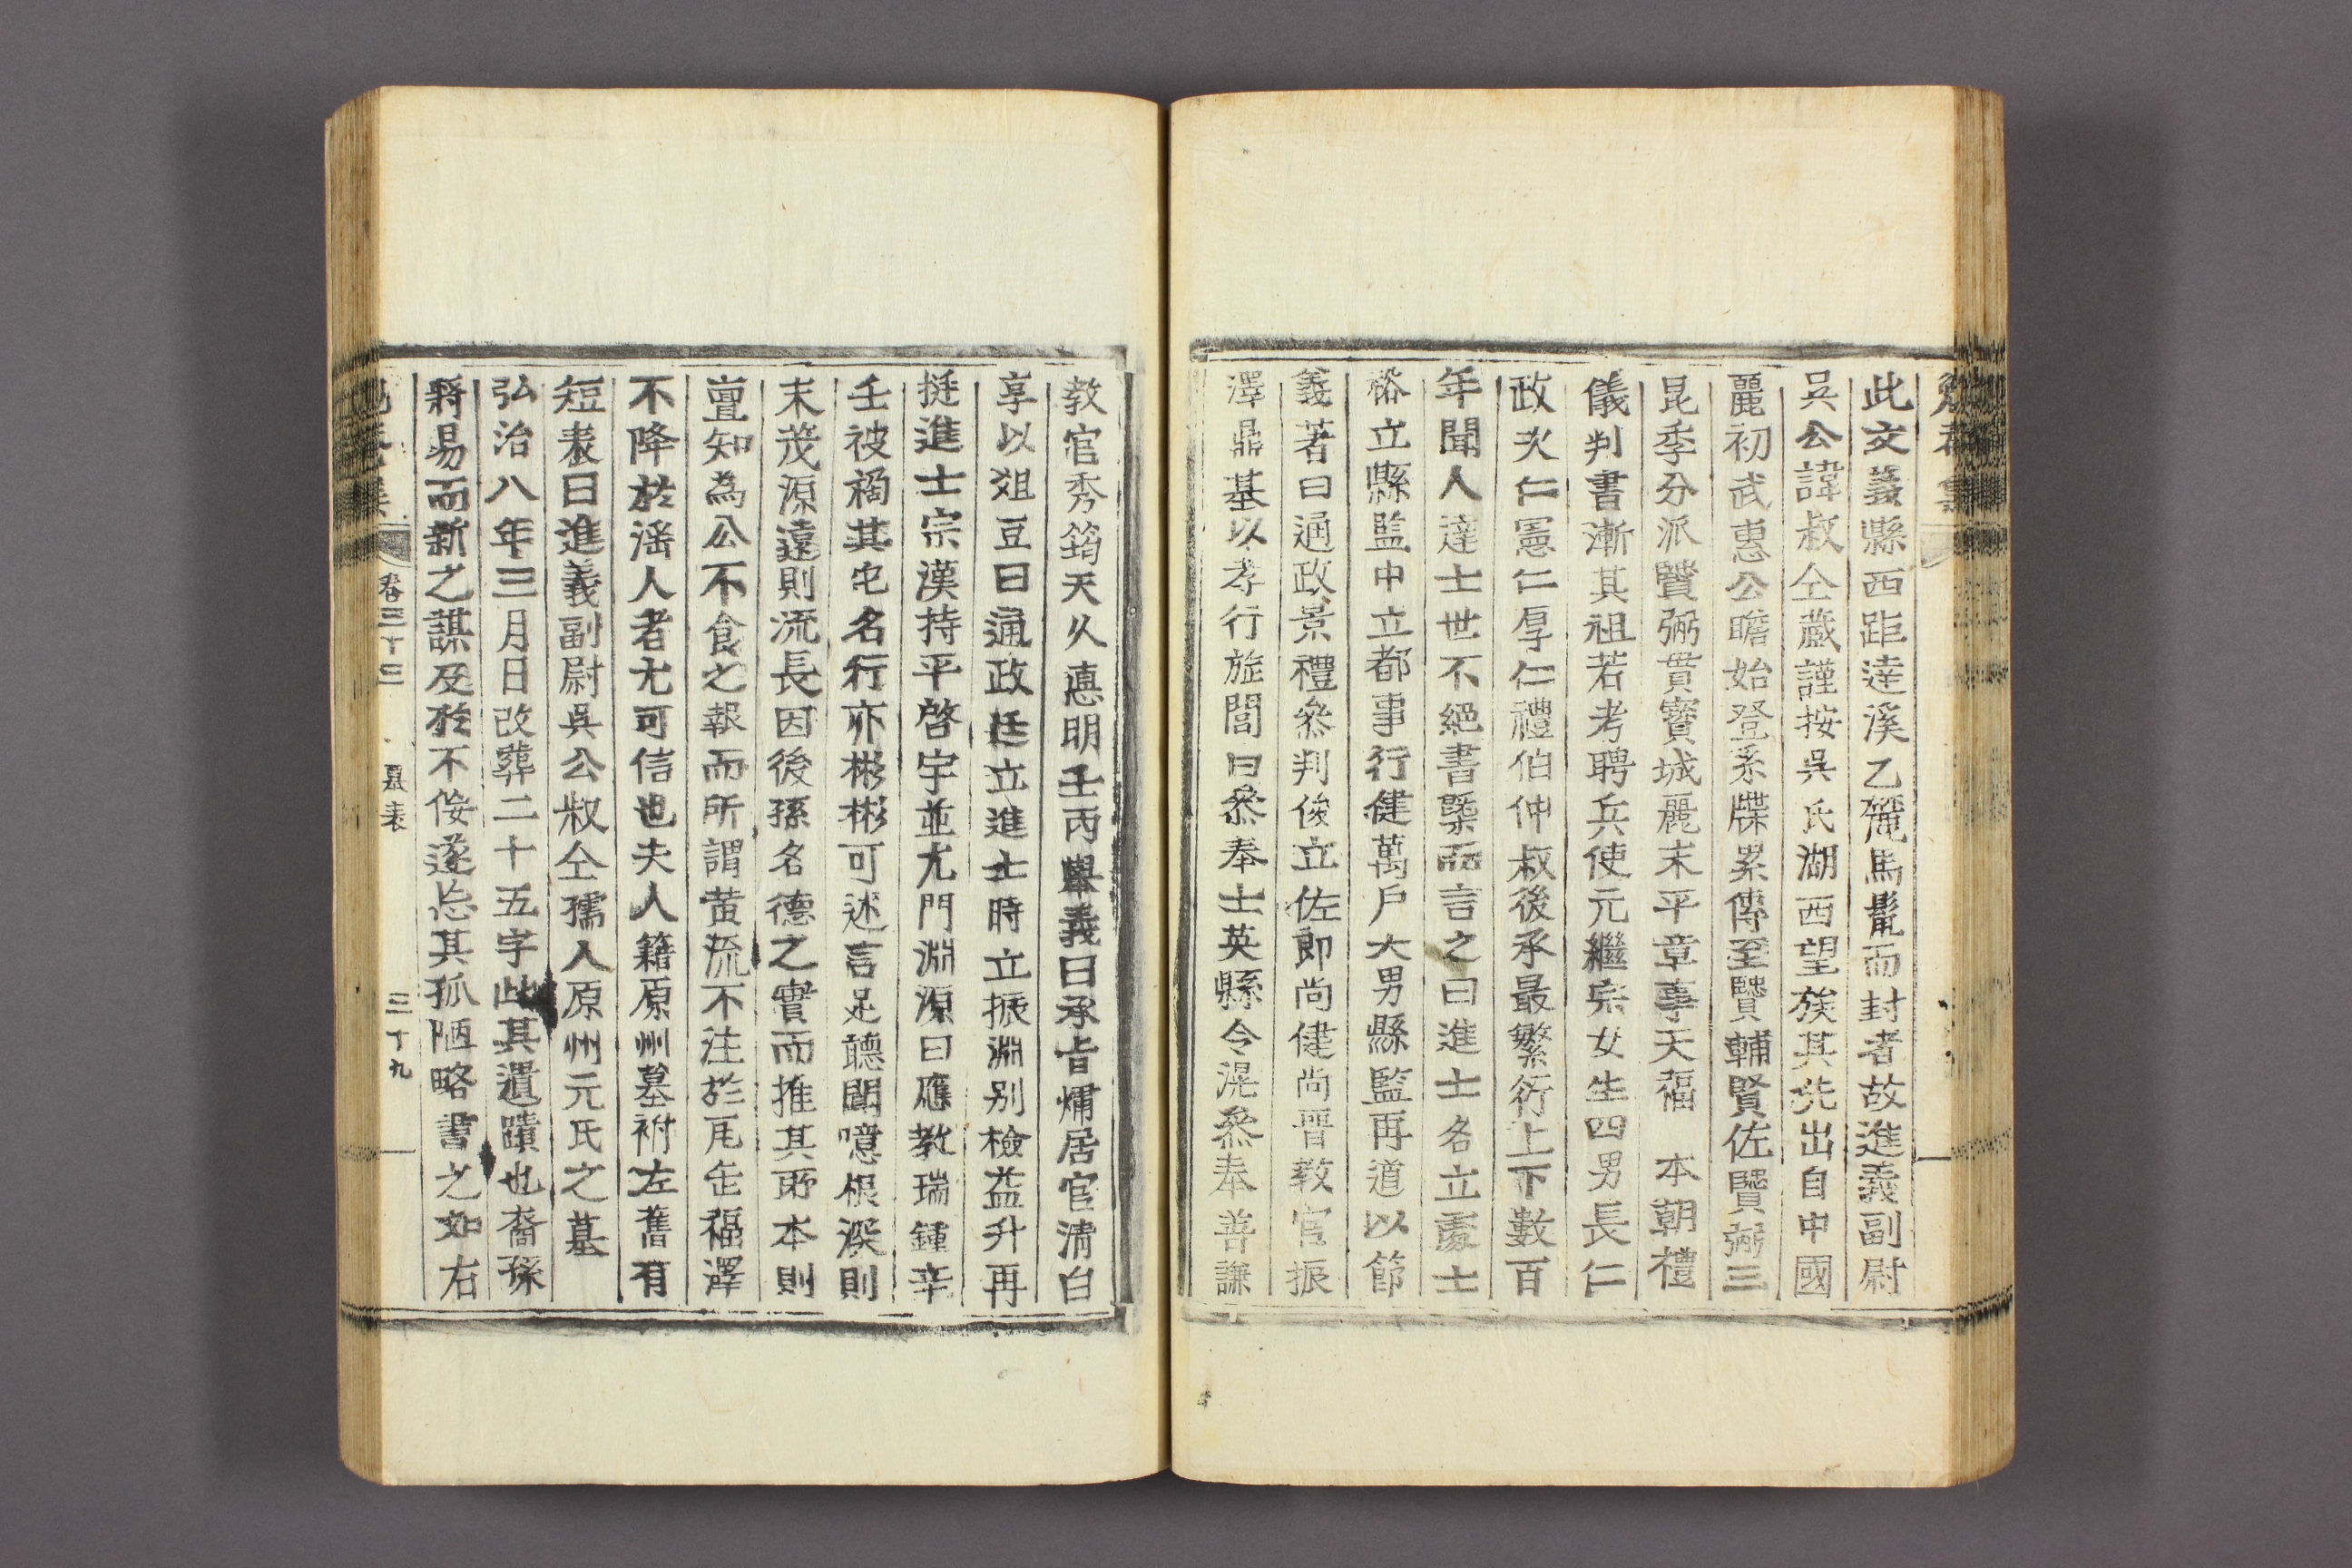 勉菴集
此文義縣西距達溪乙麓馬鬣而封者故進義副尉
吳公諱叔仝藏謹按吳氏湖西望族其先出自中國
麗初武惠公瞻始登系牒累傳至賢輔賢佐賢弼三
昆季分派賢弼貫寶城麗末平章事天福 本朝禮
儀判書漸其祖若考聘兵使元繼宗女生四男長仁
政次仁憲仁厚仁禮伯仲叔後承最繁衍上下數百
年聞人達士世不絕書槩而言之曰進士名立處士
裕立縣監中立都事行健萬戶大男縣監再道以節
義著曰通政景禮參判俊立佐郎尚健尚晋教官振
澤鼎基以孝行旋閭曰參奉士英縣令滉參奉善謙
教官秀筠天久悳明壬丙舉義曰承旨熽居官清白
享以俎豆曰通政廷立進士時立振淵別檢益升再
挺進士宗漢持平啓宇並尤門淵源曰應教瑞鍾辛
壬被禍其它名行亦彬彬可述言足聽聞噫根深則
末茂源遠則流長因後孫名德之實而推其所本則
亶知為公不食之報而所謂黃流不注於瓦缶福澤
不降於滛人者尤可信也夫人籍原州墓祔左舊有
短表曰進義副尉吳公叔仝孺人原州元氏之墓
弘治八年三月日改葬二十五字此其遺蹟也裔孫
將易而新之謀及於不佞遂忘其孤陋略書之如右
卷三十三 墓表 三十九